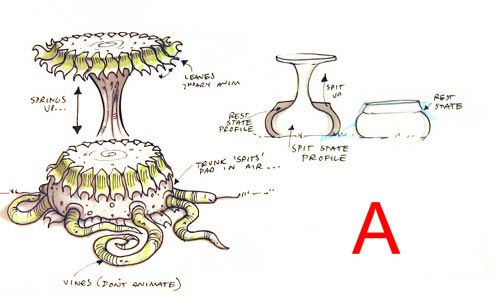 LEAVES
2NDARY ANIM
SPRINGS
UP...
TRUNK 'SPITS'
PAD IN AIR...
VINES (DON'T ANIMATE)
SPIT
UP
REST
STATE
PROFILE
SPIT STATE
PROFILE
REST
STATE
A